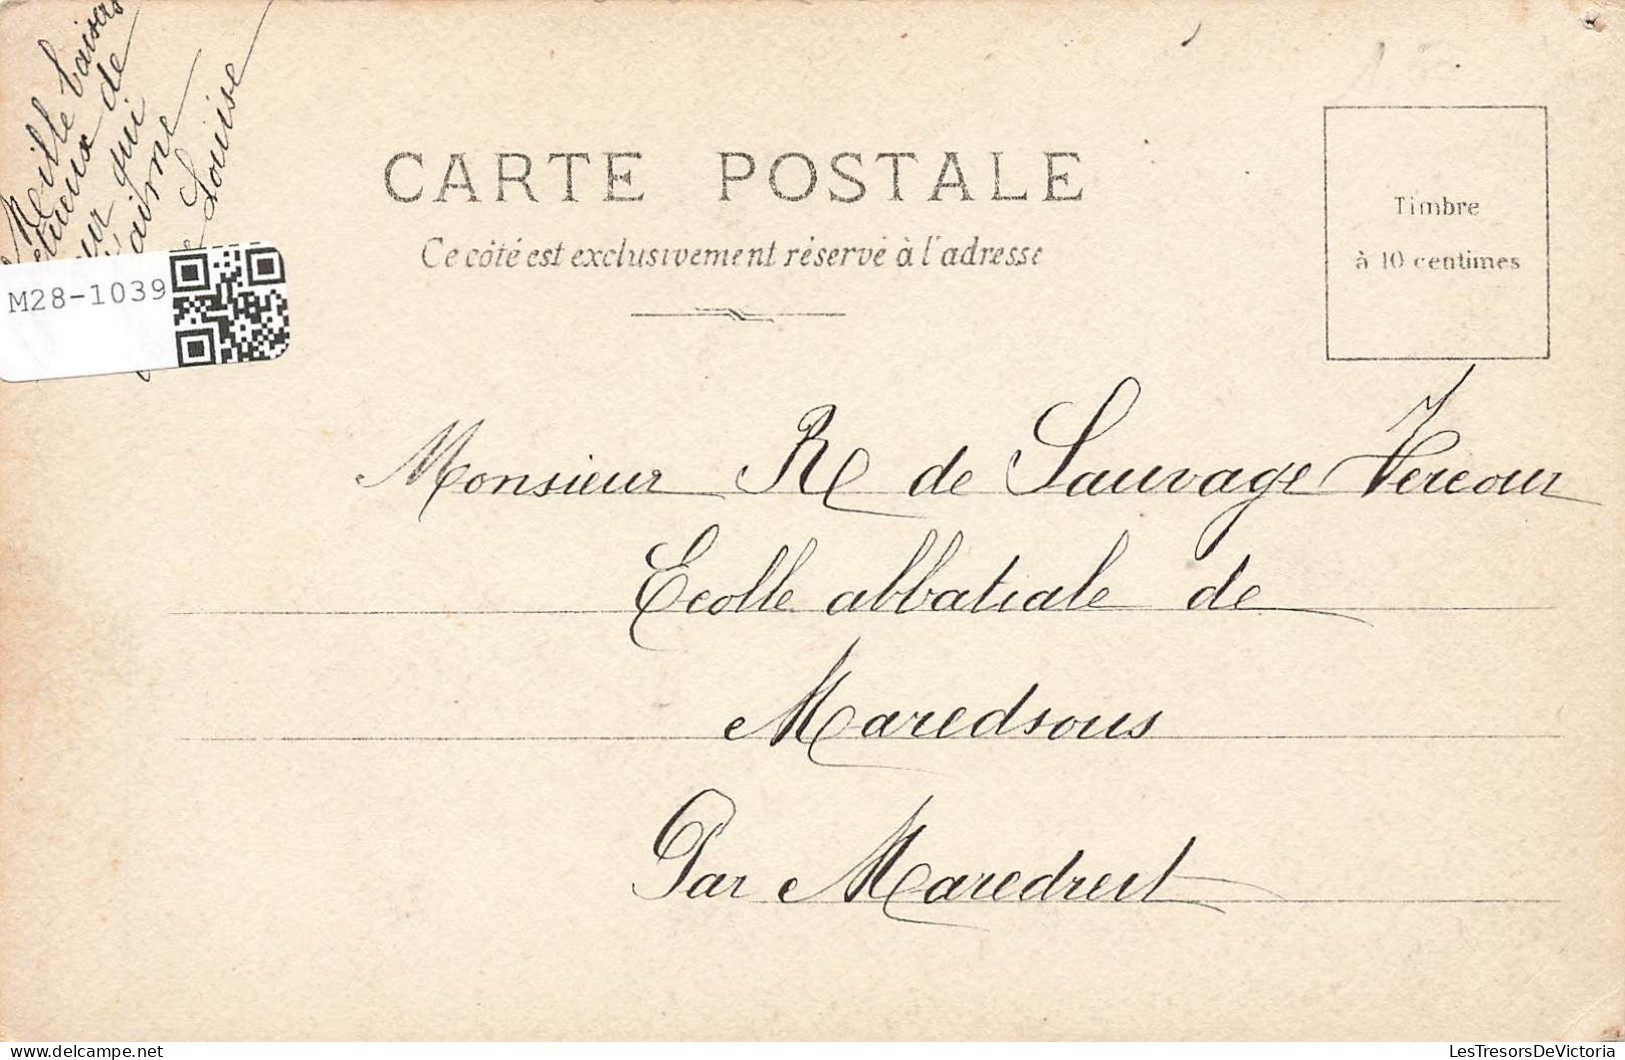 Mille baisers
de
qui
aime
Louise
M28-1039
CARTE POSTALE
Ce côté est exclusivement réservé à l'adresse
Timbre
à 10 centimes
Monsieur R de Sauvage Vercour
Ecolle abbatiale de
Maredsous
Par Maredret
delcampe.net
LesTresorsDeVictoria